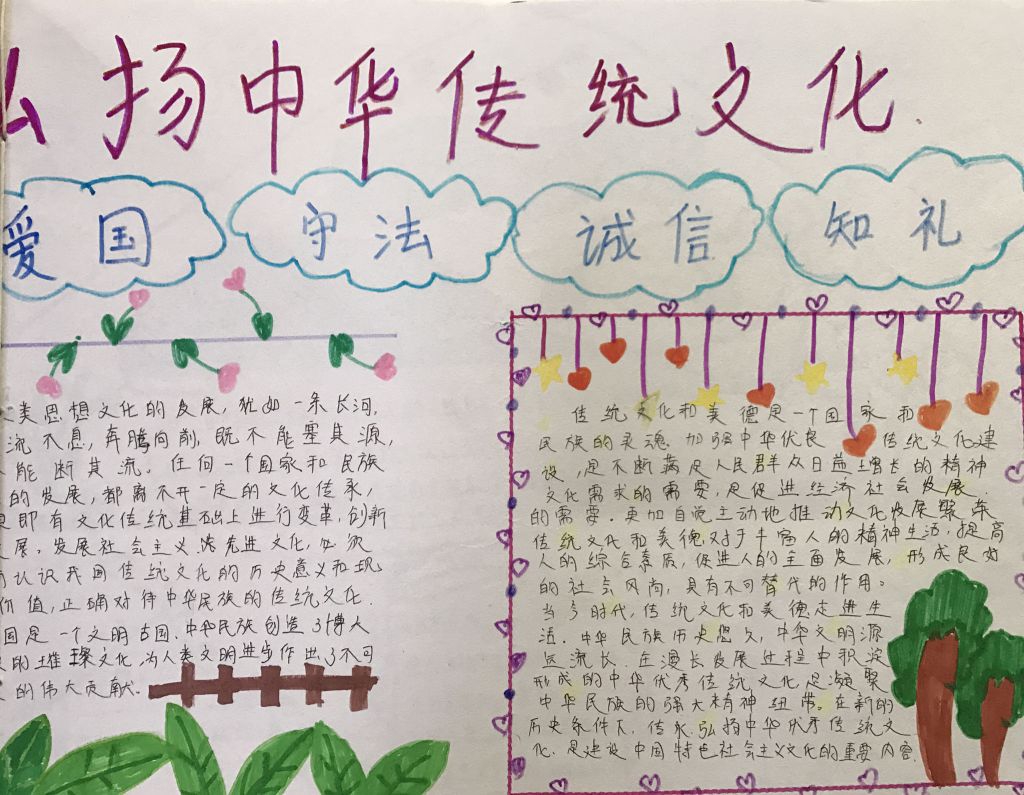 弘扬中华传统文化
爱国
守法
诚信
知礼
类思想文化的发展,犹如一条长河,
流不息,奔腾向前,既不能塞其源,
能断其流。任何一个国家和民族
的发展,都离不开一定的文化传承,
是即有文化传统基础上进行变革,创新
发展。发展社会主义先进文化,必须
认识我国传统文化的历史意义和现
价值,正确对待中华民族的传统文化.
国是一个文明古国.中华民族创造了博大
的璀璨文化,为人类文明进步作出了不可
的伟大贡献.
传统文化和美德是一个国家和
民族的灵魂.加强中华优良传统文化建
设,是不断满足人民群众日益增长的精神
文化需求的需要,是促进经济社会发展
的需要.更加自觉主动地推动文化发展繁荣
传统文化和美德,对于丰富人的精神生活,提高
人的综合素质,促进人的全面发展,形成良好
的社会风尚,具有不可替代的作用。
当今时代,传统文化和美德走进生
活.中华民族历史悠久,中华文明源
远流长.在漫长发展进程中积淀
形成的中华优秀传统文化,是凝聚
中华民族的强大精神纽带。在新的
历史条件下,传承弘扬中华优秀传统文
化.是建设中国特色社会主义文化的重要内容.